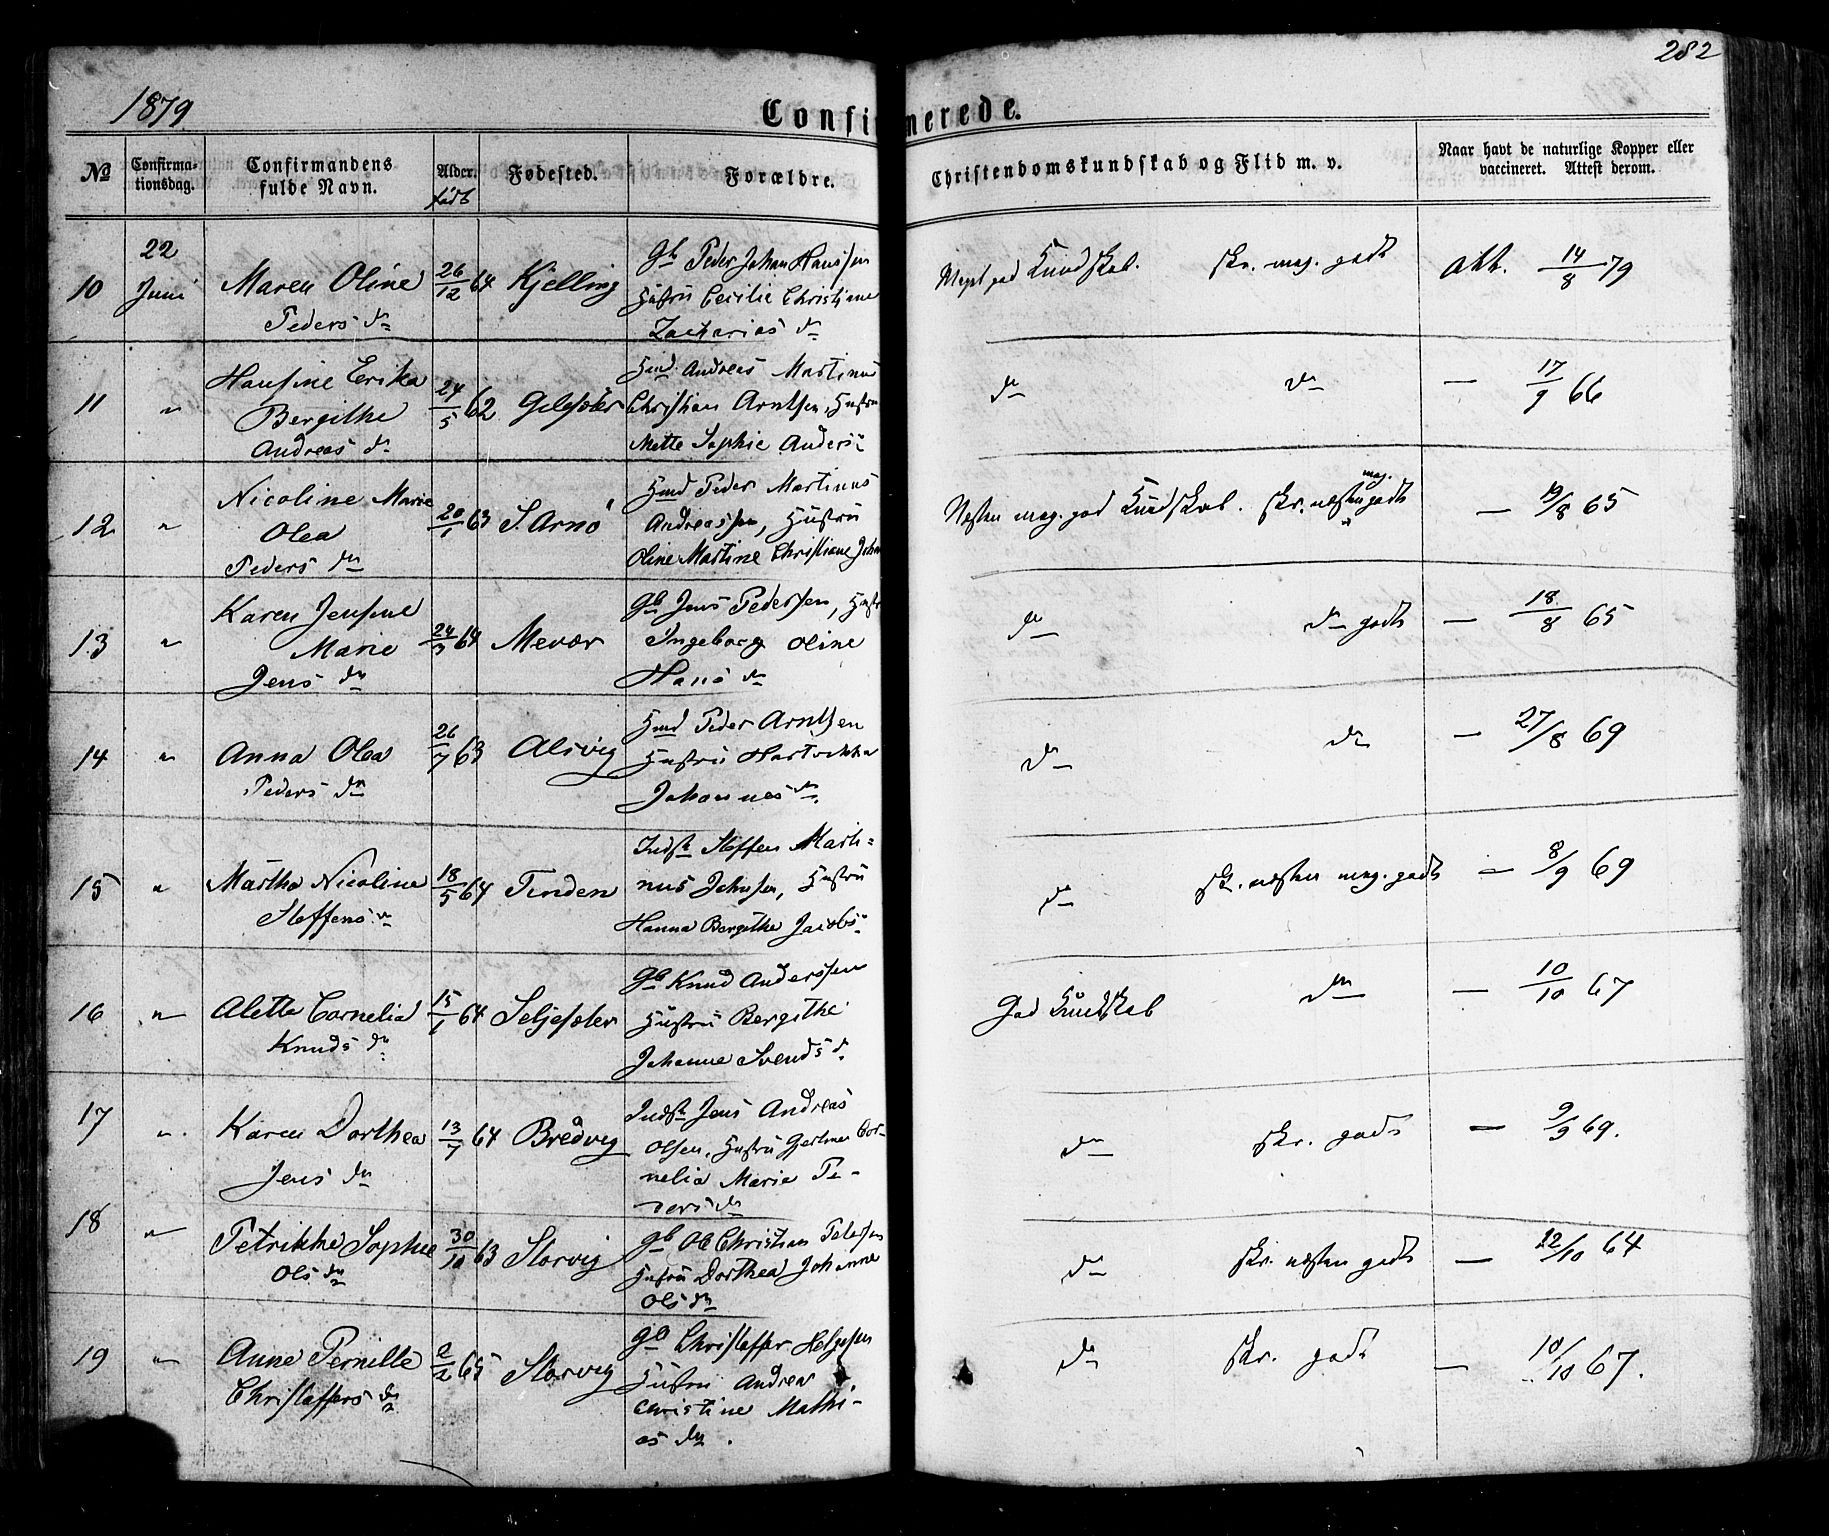 282
1879
Confirmerede.
No
Confirma-
tionsdag.
Confirmandens
fulde Navn.
Alder.
født
Fødested.
Forældre.
Christendomskundskab og Flid m. v.
Naar havt de naturlige Kopper eller
vaccineret. Attest derom.
10
22
Juni
Maren Oline
Peders dr
26/12 64
Kjelling
Gb Peder Johan Hansen
Hustru Cecilie Christiane
Zacharias dr
Meget god Kundskab. skr. meg. godt
Att. 14/8 79
11
"
Hansine Erika
Bergithe
Andreas dr
24/5 62
Gilesæter
Hmd. Andreas Martinus
Christian Arntsen, Hustru
Mette Sophie Anders:
do do
— 17/9 66
12
"
Nicoline Marie
Olea
Peders dr
20/1 63
S. Arnø
Hmd Peder Martinus
Andreassen, Hustru
Oline Martine Christiane Joh
Næsten meg. god Kundskab. skr. næsten meg. godt
— 19/8 65
13
"
Karen Jensine
Marie
Jens dr
64
Mevær
Gb Jens Pedersen, Hustr
Ingeborg Oline
Hans dr
do do godt
— 18/8 65
14
"
Anna Olea
Peders dr
26/7 63
Alsvig
Hmd Peder Arntsen
Hustru
Johannes dr.
do do
— 27/8 69
15
"
Martha Nicoline
Steffens dr
18/5 64
Tinden
Indst Steffen Marti=
nus Johnsen, Hustru
Hanna Bergithe Jacobs-
do skr. næsten meg. godt
— 8/9 69
16
"
Alette Cornelia
Knuds dr
15/1 64
Seljesæter
Gb Knud Anderssen
Hustru Bergithe
Johanne Svends dr
God Kundskab do
— 10/10 67
17
"
Karen Dorthea
Jens dr
13/7 64
Bredvig
Indst Jens Andreas
Olsen, Hustru Cor-
nelia Marie Pe-
ders dr
do skr. godt
— 9/9 69.
18
"
Petrikke Sophie
Ols dr
30/10 63
Storvig
Gb Ole Christian
Hustru Dorthea Johanna
Ols dr
do skr. næsten godt
— 22/10 64
19
"
Anne Pernille
Christoffers dr
2/2 65
Storvig
Gb Christoffer Helgesen
Hustru Andrea
Christine Mathi-
as dr.
do skr. godt
— 10/10 67.